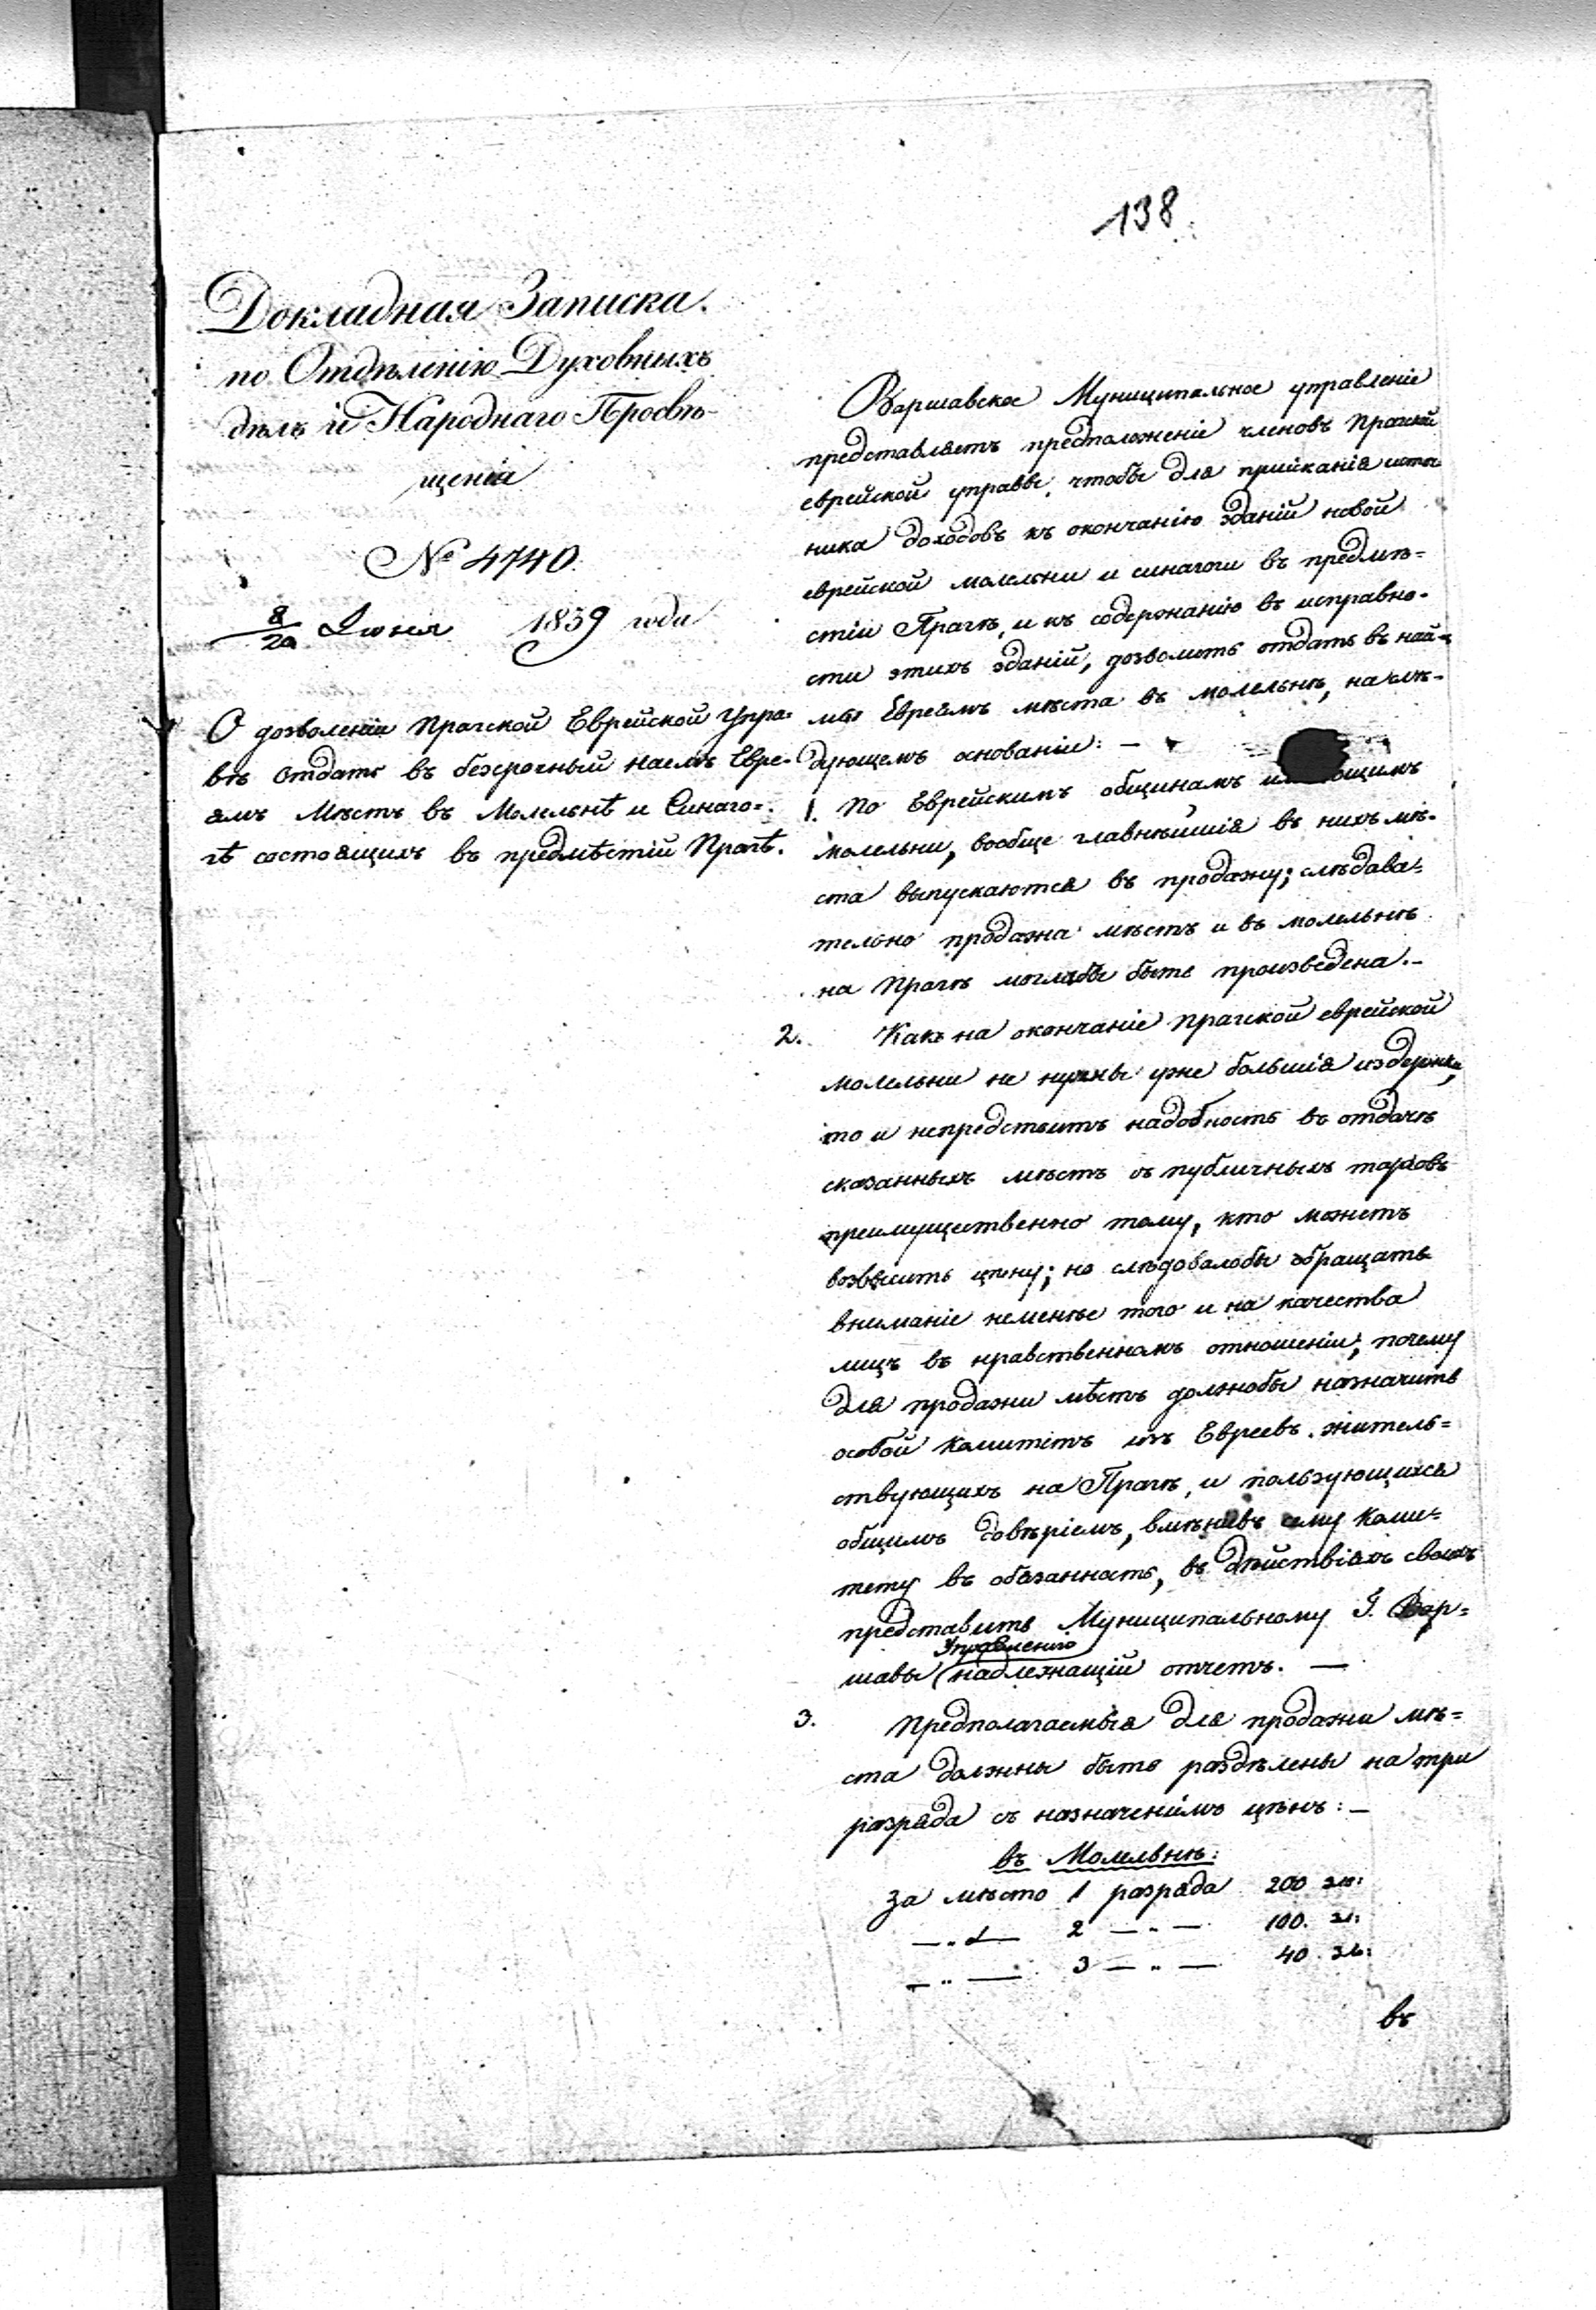 138.
Докладная Записка.
по Отдѣленію Духовныхъ
дѣлъ и Народнаго Просвѣ-
щенія
№ 4740.
8/20 Июня 1839 года
О дозволеніи Прагской Еврейской Упра-
вѣ отдать въ безсрочный наемъ Евре-
ямъ Мѣстъ въ Молельнѣ и Синаго=
гѣ состоящихъ въ предмѣстіи Прагѣ.
Варшавское Муниципальное управленіе
представляетъ предположеніе членовъ Прагской
еврейской управы, чтобы для пріисканія источ
ника доходовъ къ окончанію зданій новой
еврейской молельни и синагоги въ предмѣ=
стіи Прагѣ, и къ содержанію въ исправно-
сти этихъ зданій, дозволить отдать въ най-
мы Евреямъ мѣста въ молельнѣ, на слѣ-
дующемъ основаніи: —
1. По Еврейскимъ общинамъ имѣющимъ
молельни, вообще главнѣйшія въ нихъ мѣ-
ста выпускаются въ продажу; слѣдова=
тельно продажа мѣстъ и въ молельнѣ
на Прагѣ моглабы быть произведена. —
2. Какъ на окончаніе прагской еврейской
молельни не нужны уже большія издержки,
то и непредстоитъ надобность въ отдачѣ
сказанныхъ мѣстъ съ публичныхъ торговъ
преимущественно тому, кто можетъ
возвысить цѣну; но слѣдовалобы обращать
вниманіе неменѣе того и на качества
лицъ въ нравственномъ отношеніи; почему
для продажи мѣстъ должнобы назначить
особой Комитетъ изъ Евреевъ житель=
ствующихъ на Прагѣ, и пользующихся
общимъ довѣріемъ, вмѣнивъ сему Коми=
тету въ обязанность, въ дѣйствіяхъ своихъ
представить Муниципальному Г. Вар=
Управленію
шавы надлежащій отчетъ. —
3. Предполагаемыя для продажи мѣ=
ста должны быть раздѣлены на три
разряда съ назначеніемъ цѣнъ: —
въ Молельнѣ:
За мѣсто 1 разряда 200 зл:
— „ — 2 — „ — 100. зл:
— „ — 3 — „ — 40 зл:
въ